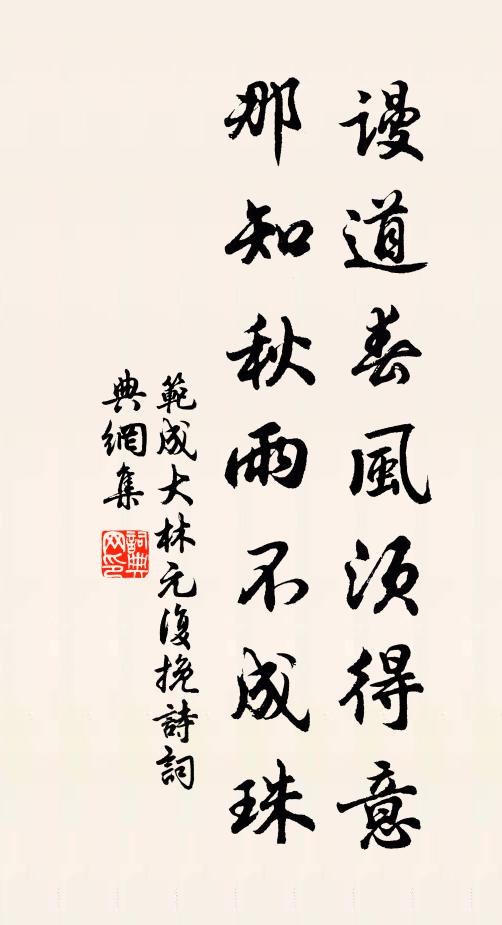 謾道春風須得意
那知秋雨不成珠
範成大林元復挽詩詞
典網集
詞典
网印